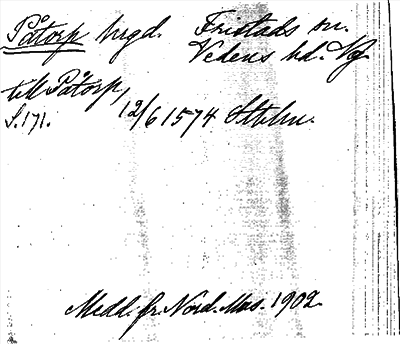 Påtorp hrgd. Fristads sn.
Vedens hd. Vg
till Påtorp, 12/6 1574 Sthlm.
S. 171.
Medd. fr. Nord. Mus. 1902.